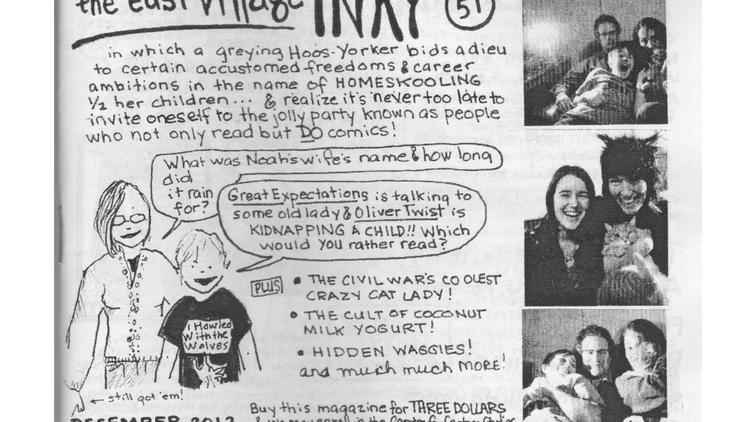 the east village INKY 51
in which a greying Hoos-Yorker bids adieu
to certain accustomed freedoms & career
ambitions in the name of HOMESKOOLING
½ her children... & realize it's never too late to
invite oneself to the jolly party known as people
who not only read but DO comics!
What was Noah's wife's name & how long
did
it rain
for?
Great Expectations is talking to
some old lady & Oliver Twist is
KIDNAPPING A CHILD!! Which
would you rather read?
PLUS
• THE CIVIL WAR'S COOLEST
CRAZY CAT LADY!
• THE CULT OF COCONUT
MILK YOGURT!
• HIDDEN WAGGIES!
and much much MORE!
I Howled
With the
Wolves
← still got 'em!
DECEMBER 2012
Buy this magazine for THREE DOLLARS